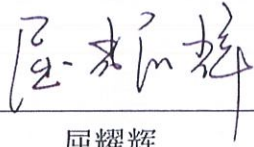 屈耀辉
屈耀辉